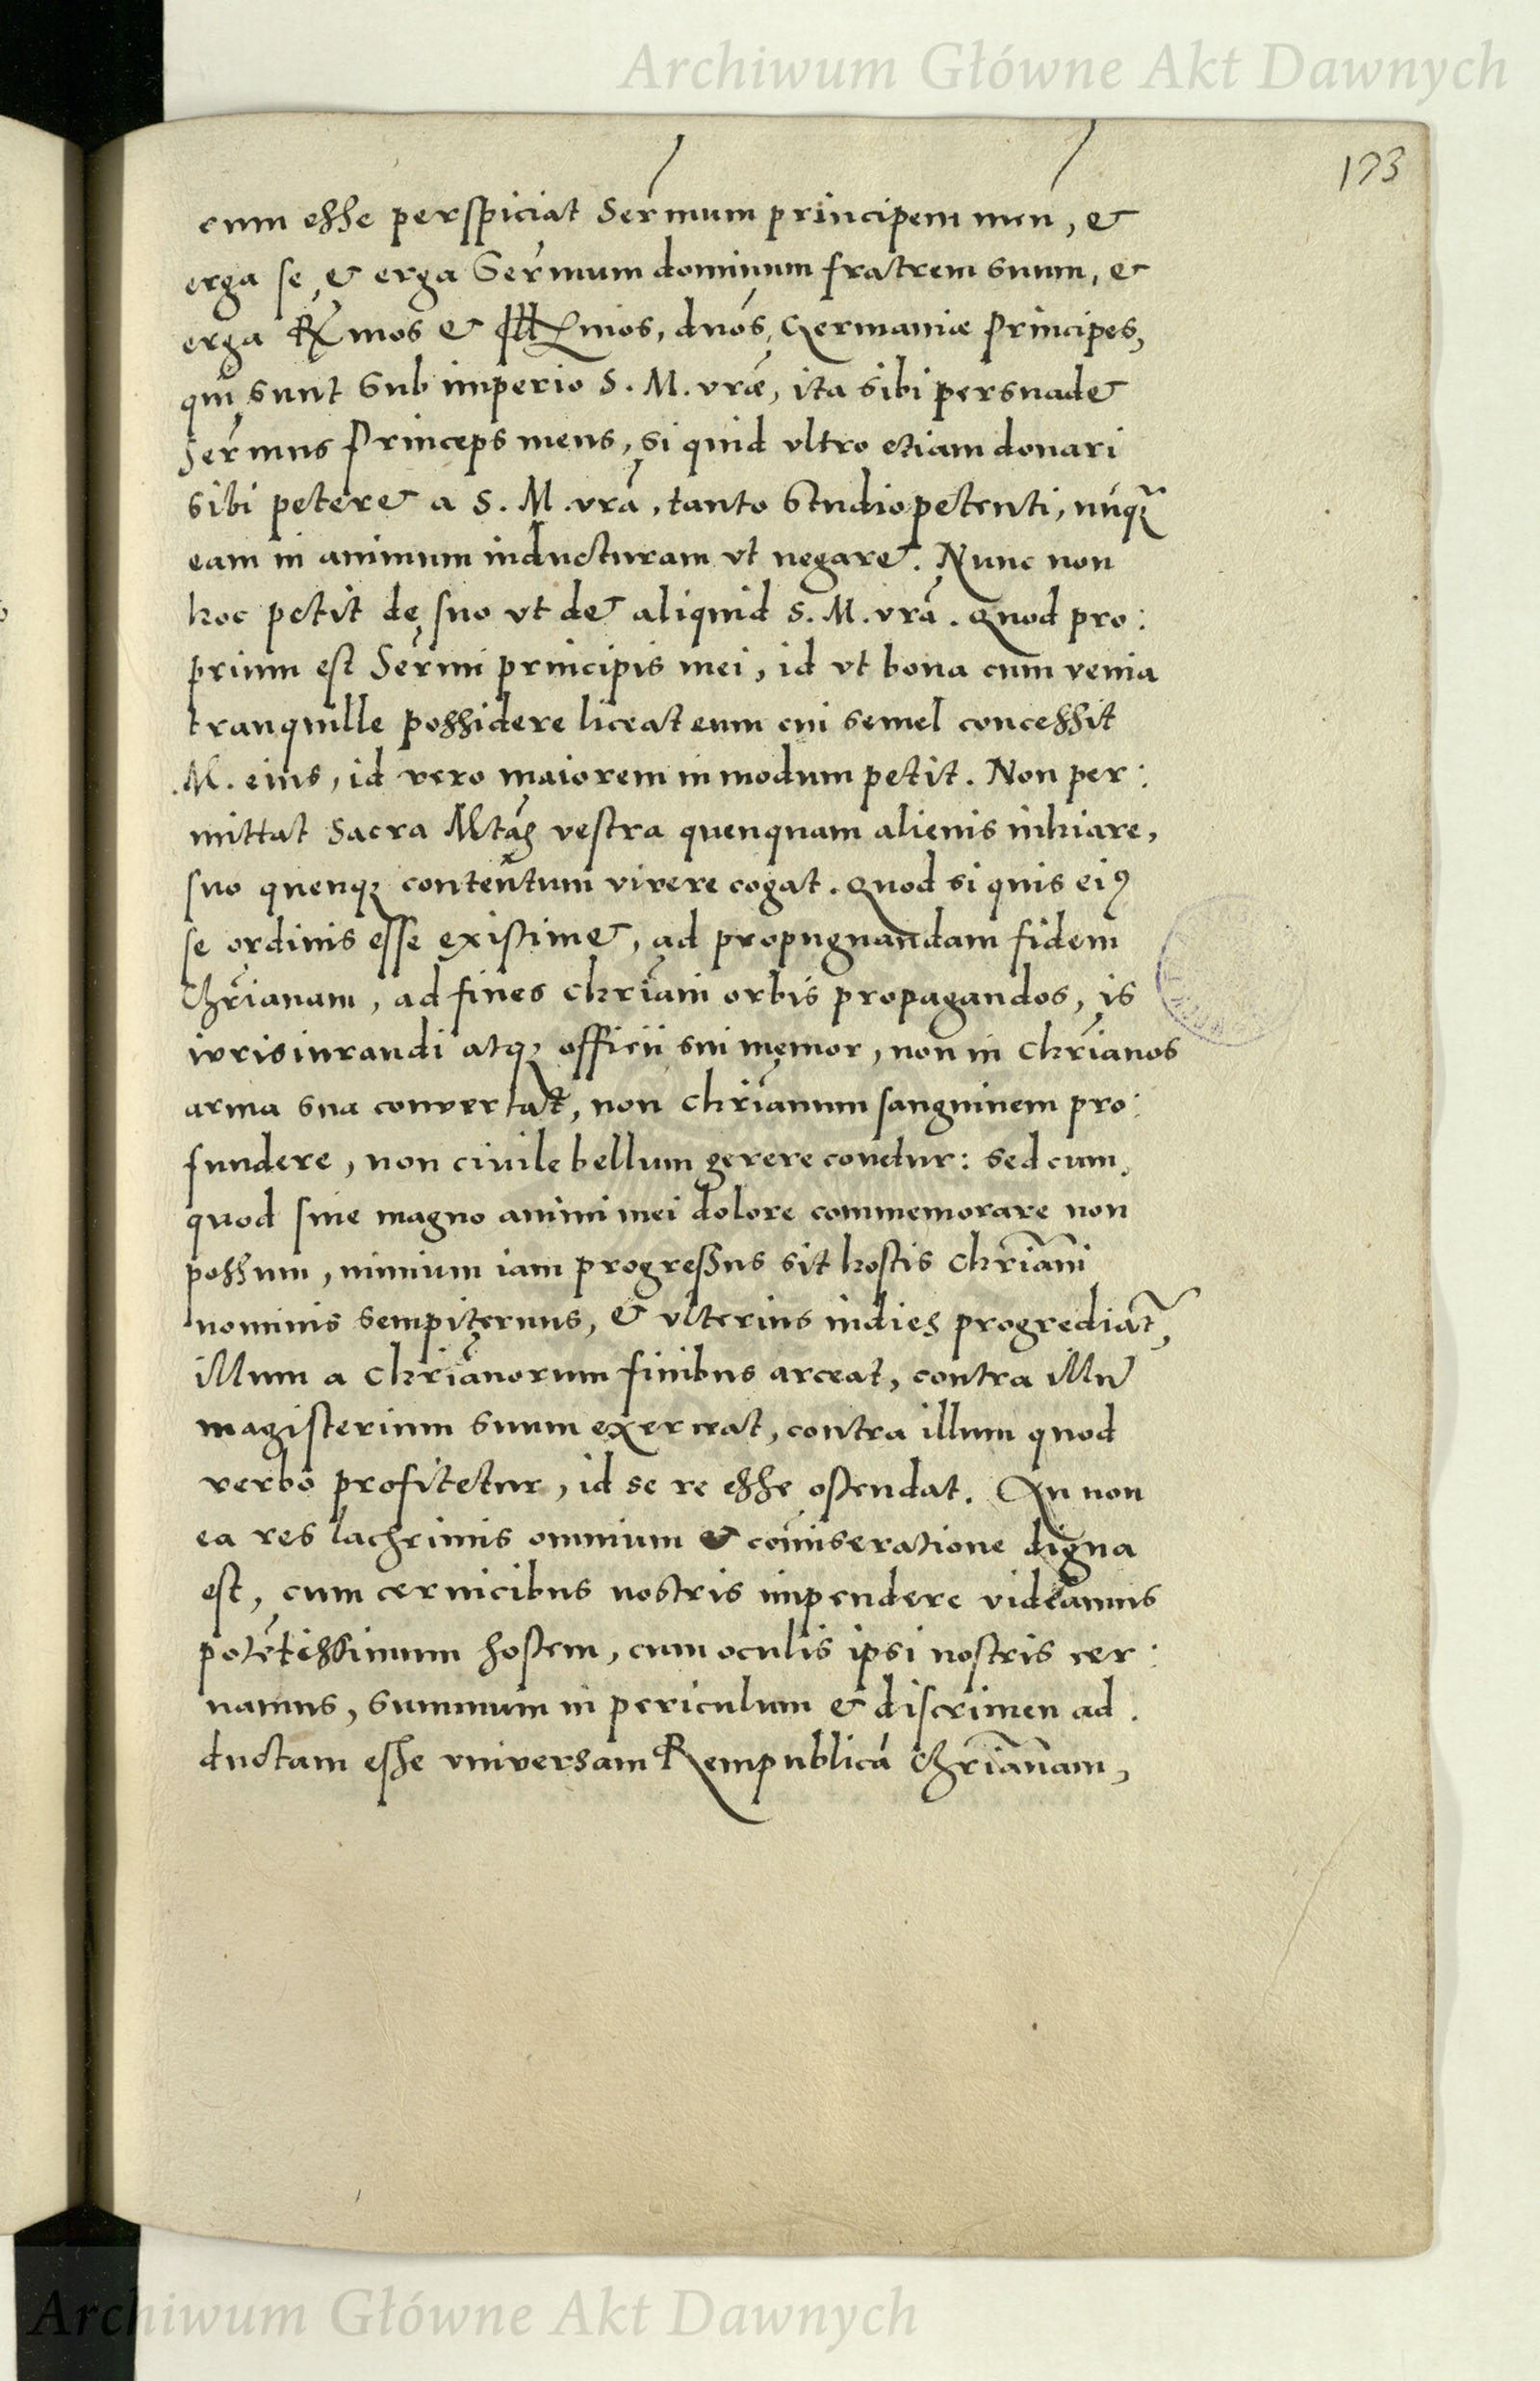 Archiwum Główne Akt Dawnych
173
eum esse perspiciat Sermum principem meu, &
erga se, & erga Sermum dominum fratrem suum, &
erga Rmos & Illmos, dnos Germaniæ Principes,
qui sunt sub imperio S. M. vræ, ita sibi persuadet
Sermus Princeps meus, si quid vltro etiam donari
sibi peteret a S. M. vra, tanto studio petenti, nuq̃
eam in animum inducturam vt negaret. Nunc non
hoc petit de suo vt det aliquid S. M. vra. Quod pro:
prium est Sermi principis mei, id vt bona cum venia
tranquille possidere liceat eum cui semel concessit
M. eius, id vero maiorem in modum petit. Non per:
mittat Sacra Mtas vestra quenquam alienis inhiare,
suo quenq; contentum vivere cogat. Quod si quis ei9
se ordinis esse existimet, ad propugnandam fidem
Chrianam, ad fines chriani orbis propagandos, is
iurisiurandi atq; officii sui memor, non in chrianos
arma sua convertat, non chrianum sanguinem pro:
fundere, non civile bellum gerere conetur: sed cum,
quod sine magno animi mei dolore commemorare non
possum, nimium iam progressus sit hostis chriani
nominis sempiternus, & vlterius indies progrediat̃,
illum a chrianorum finibus arceat, contra illũ
magisterium suum exerceat, contra illum quod
verbo profitetur, id se re esse ostendat. An non
ea res lachrimis omnium & comiseratione digna
est, cum cervicibus nostris impendere videamus
potẽtissimum hostem, cum oculis ipsi nostris cer:
namus, summum in periculum & discrimen ad.
ductam esse vniversam Rempublicã Chrianam,
Archiwum Główne Akt Dawnych